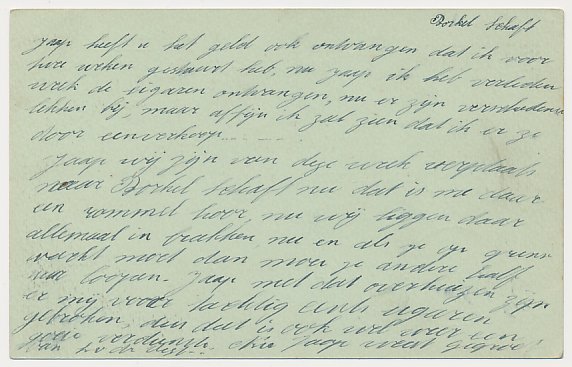 Borkel Schaft
Jaap heeft u het geld ook ontvangen dat ik voor
twee weken gestuurt heb, nu Jaap ik heb verleden
week de sigaren ontvangen, nu er zijn verschillende
lekken bij, maar affijn ik zal zien dat ik er ze
door een verkoop
Jaap wij zijn van deze week verplaats
naar Borkel Schaft nu dat is me daar
een rommel hoor, nu wij liggen daar
allemaal in brakken, nu en als je op grens
wacht moet dan moet je andere half
uur loopen. Jaap met dat overhuizen zijn
er mij voor tachtig cents sigaren
gebroken, dus dat is ook wel weer een
verdienste. Jaap weest gegroet
van